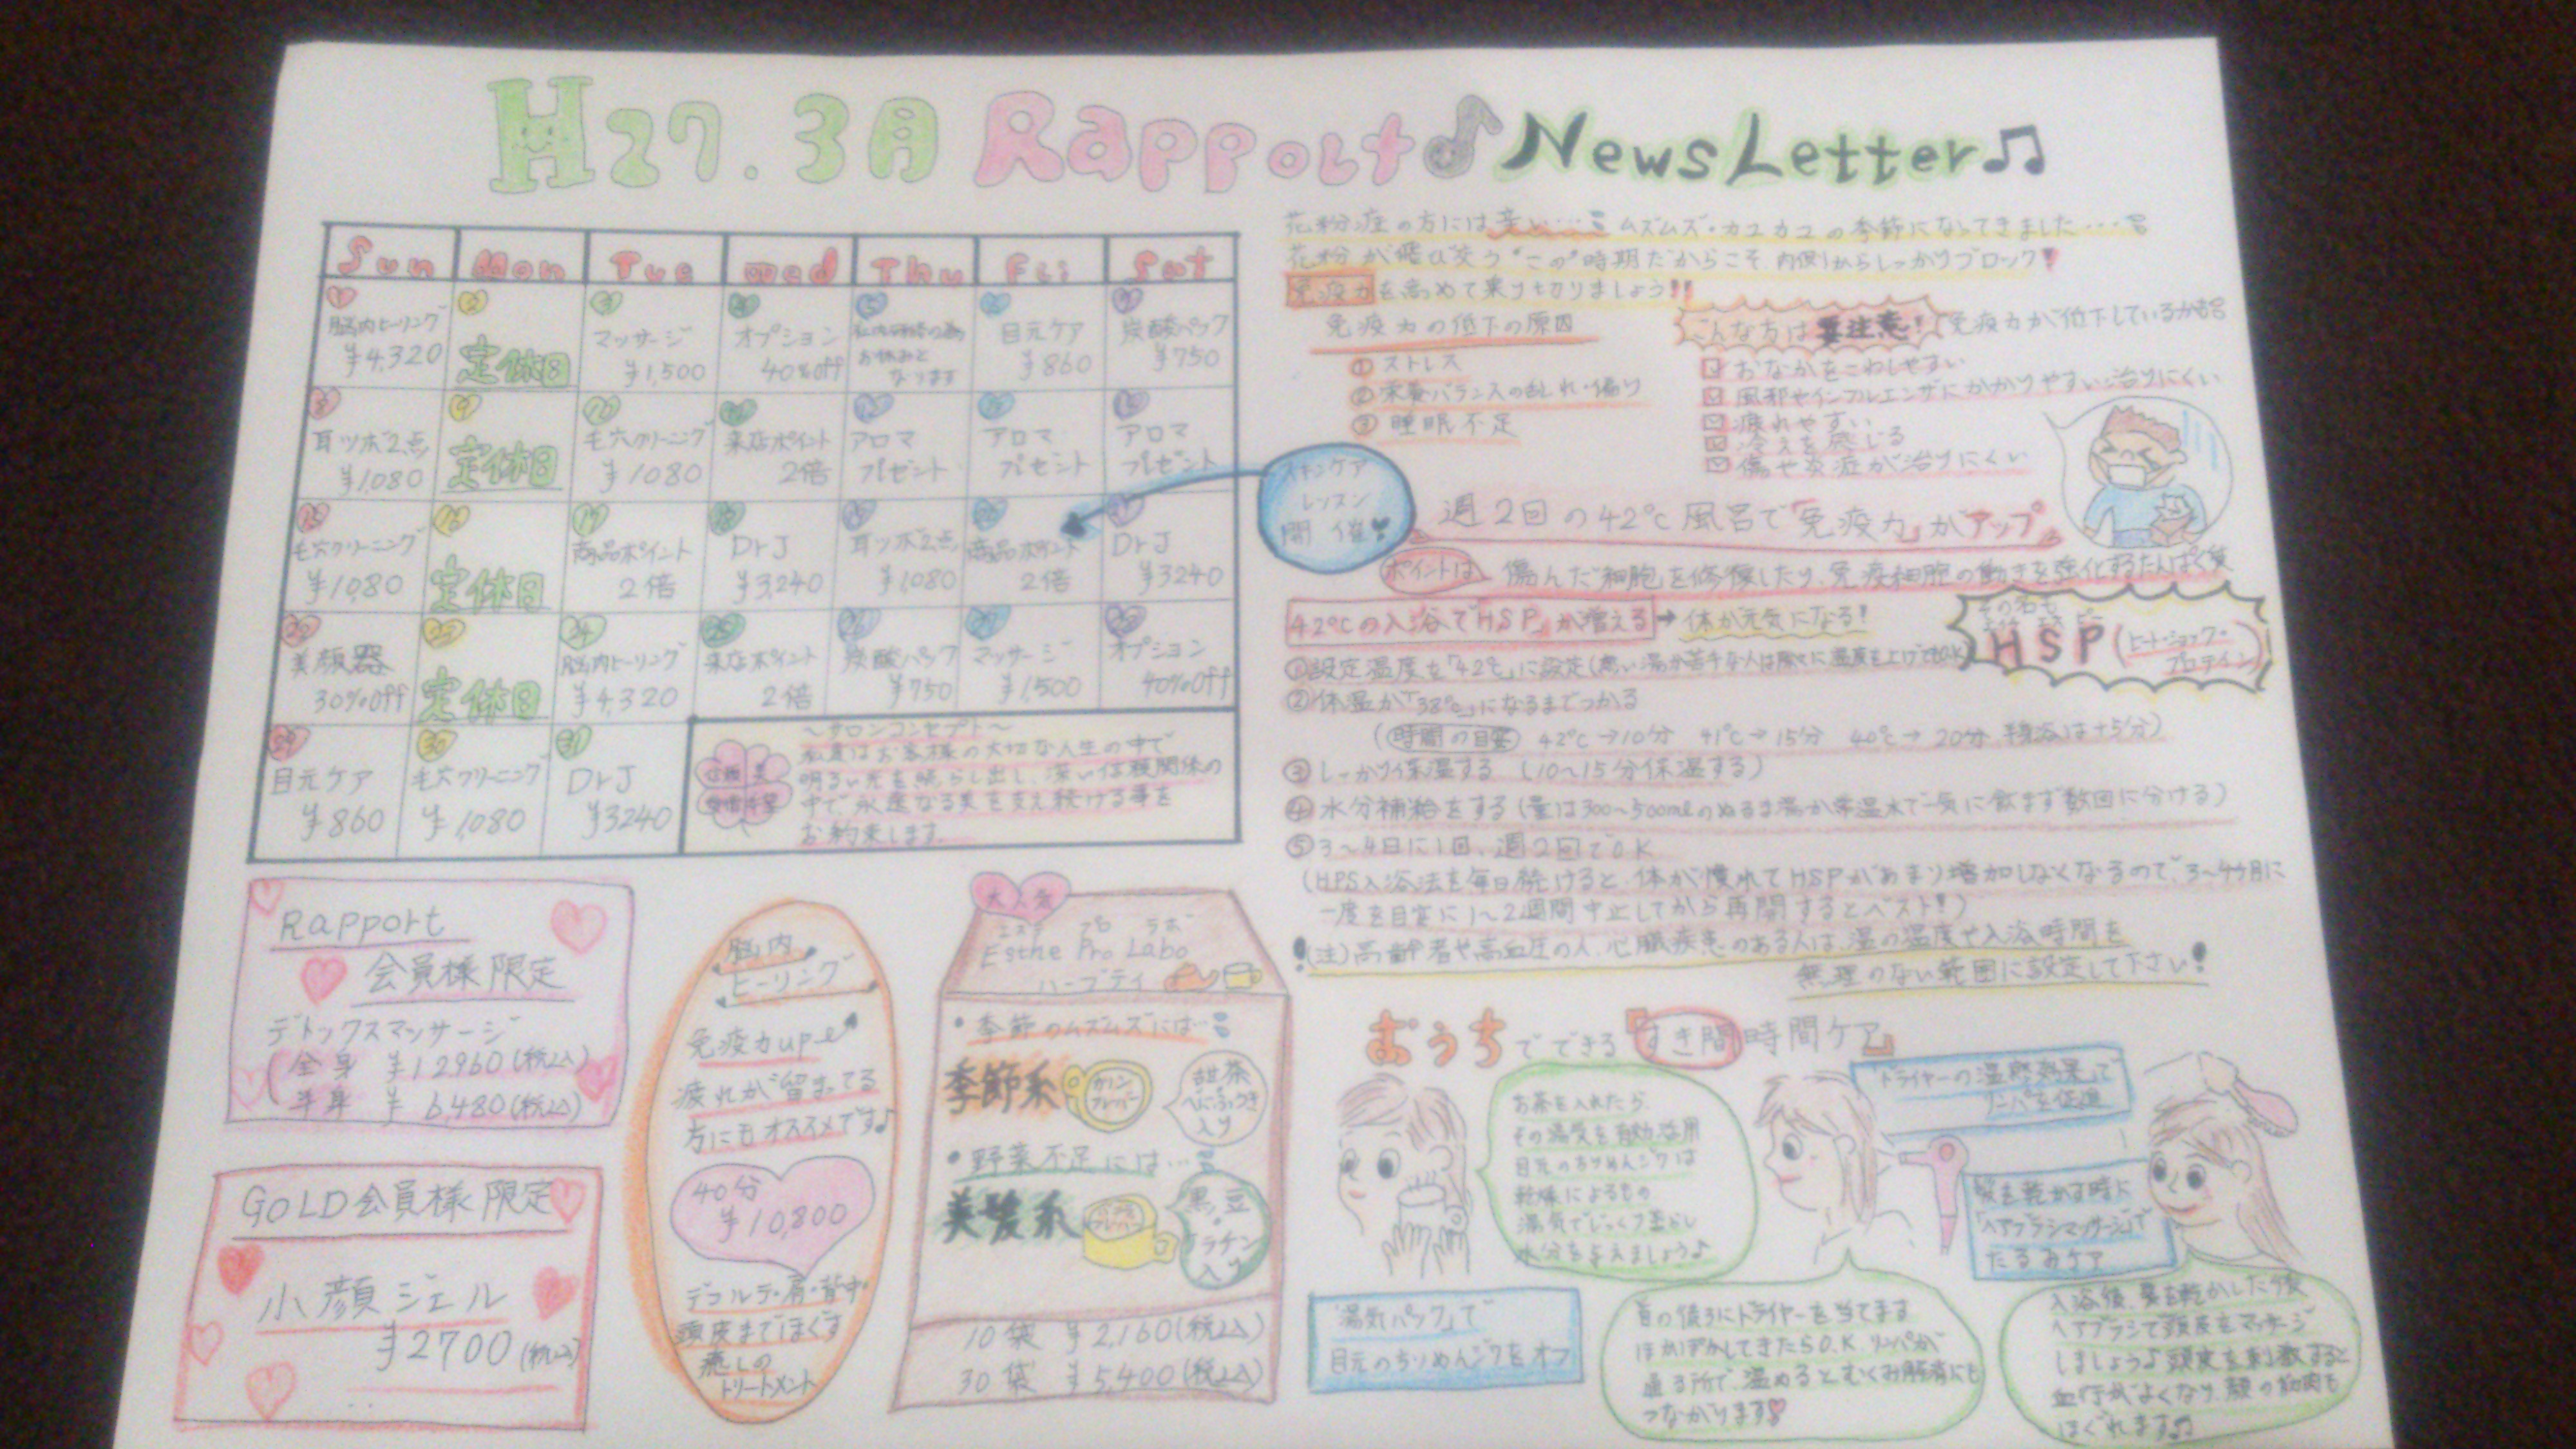 H27.3月 Rapport♪ NewsLetter♫
Sun Mon Tue Wed Thu Fri Sat
1 2 3 4 5 6 7
脳内ヒーリング ¥4,320
定休日
マッサージ ¥1,500
オプション 40%off
社内研修の為お休みとなります
目元ケア ¥860
炭酸パック ¥750
8 9 10 11 12 13 14
耳ツボ2点 ¥1,080
定休日
毛穴クリーニング ¥1080
来店ポイント 2倍
アロマ プレゼント
アロマ プレゼント
アロマ プレゼント
15 16 17 18 19 20 21
毛穴クリーニング ¥1080
定休日
商品ポイント 2倍
DrJ ¥3,240
耳ツボ2点 ¥1,080
商品ポイント 2倍
DrJ ¥3240
22 23 24 25 26 27 28
美顔器 30%off
定休日
脳内ヒーリング ¥4,320
来店ポイント 2倍
炭酸パック ¥750
マッサージ ¥1,500
オプション 40%off
29 30 31
目元ケア ¥860
毛穴クリーニング ¥1,080
DrJ ¥3240
～サロンコンセプト～
私達はお客様の大切な人生の中で
明るい光を照らし出し、深い信頼関係の
中で永遠なる美を支え続ける事を
お約束します。
スキンケア
レッスン
開催
花粉症の方には辛い… ムズムズ・カユカユの季節になってきました…
花粉が飛び交う"この"時期だからこそ、内側からしっかりブロック!
免疫力を高めて乗り切りましょう!!
免疫力の低下の原因
①ストレス
②栄養バランスの乱れ・偏り
③睡眠不足
こんな方は要注意! 免疫力が低下しているかも
おなかをこわしやすい
風邪やインフルエンザにかかりやすい・治りにくい
疲れやすい
冷えを感じる
傷や炎症が治りにくい
週2回の42℃風呂で「免疫力」がアップ
ポイントは 傷んだ細胞を修復したり、免疫細胞の働きを強化するたんぱく質
その名も
HSP(ヒート・ショック・プロテイン)
42℃の入浴で「HSP」が増える→体が元気になる!
①設定温度を「42℃」に設定(熱い湯が苦手な人は徐々に温度を上げてOK)
②体温が「38℃」になるまでつかる
(時間の目安 42℃→10分 41℃→15分 40℃→20分 半身浴は+5分)
③しっかり保温する (10～15分保温する)
④水分補給をする(量は300～500mlのぬるま湯か常温水で一気に飲まず数回に分ける)
⑤3～4日に1回、週2回でOK
(HPS入浴法を毎日続けると、体が慣れてHSPがあまり増加しなくなるので、3～4ヶ月に
一度を目安に1～2週間中止してから再開するとベスト!)
(注)高齢者や高血圧の人、心臓疾患のある人は、湯の温度や入浴時間を
無理のない範囲に設定して下さい!
Rapport
会員様限定
デトックスマッサージ
全身 ¥12960(税込)
半身 ¥6,480(税込)
GOLD会員様限定
小顔ジェル
¥2700(税込)
脳内
ヒーリング
免疫力up
疲れが留まってる
方にもオススメです♪
40分
¥10,800
デコルテ・肩・背中・
頭皮までほぐす
癒しの
トリートメント
大人気
エステ プロ ラボ
Esthe Pro Labo
ハーブティ
・季節のムズムズには…
季節系
カリンフレーバー
甜茶
べにふうき
入り
・野菜不足には…
美髪系
黒豆
・
プラチナ
入り
10袋 ¥2,160(税込)
30袋 ¥5,400(税込)
おうちでできる『すき間時間ケア』
お茶を入れたら、
その湯気を有効活用
目元のちりめんジワは
乾燥によるもの
湯気でじっくり蒸らし
水分を与えましょう♪
「湯気パック」で
目元のちりめんジワをオフ
「ドライヤーの温熱効果」で
リンパを促進
首の後ろにドライヤーを当てます
ぽかぽかしてきたらO.K リンパが
通る所で、温めるとむくみ解消にも
つながります
髪を乾かす時に
「ヘアブラシマッサージ」で
たるみケア
入浴後、髪を乾かした後
ヘアブラシで頭皮をマッサージ
しましょう♪頭皮を刺激すると
血行がよくなり、顔の筋肉も
ほぐれます♫